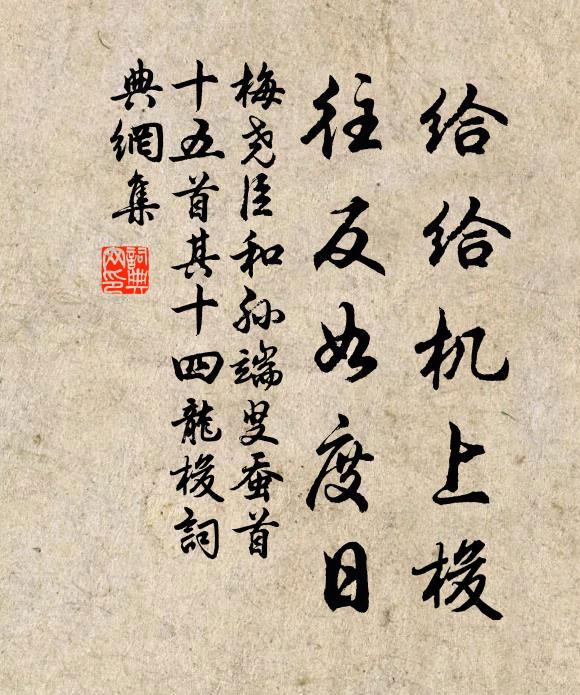 给给机上梭
往反如度日
梅尧臣和孙端叟蚕首
十五首其十四龍梭詞
典網集
詞典
网印